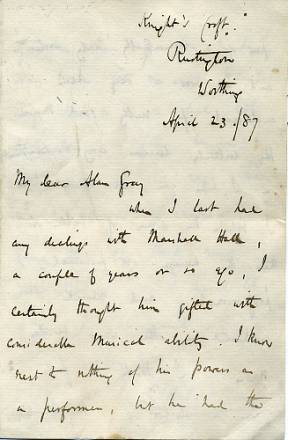 Knight's Croft.
Rustington
Worthing
April 23./87
My dear Alan Gray
when I last had
any dealings with Marshall Hall,
a couple of years or so ago, I
certainly thought him gifted with
considerable Musical ability. I know
next to nothing of his powers as
a performer, but he had the